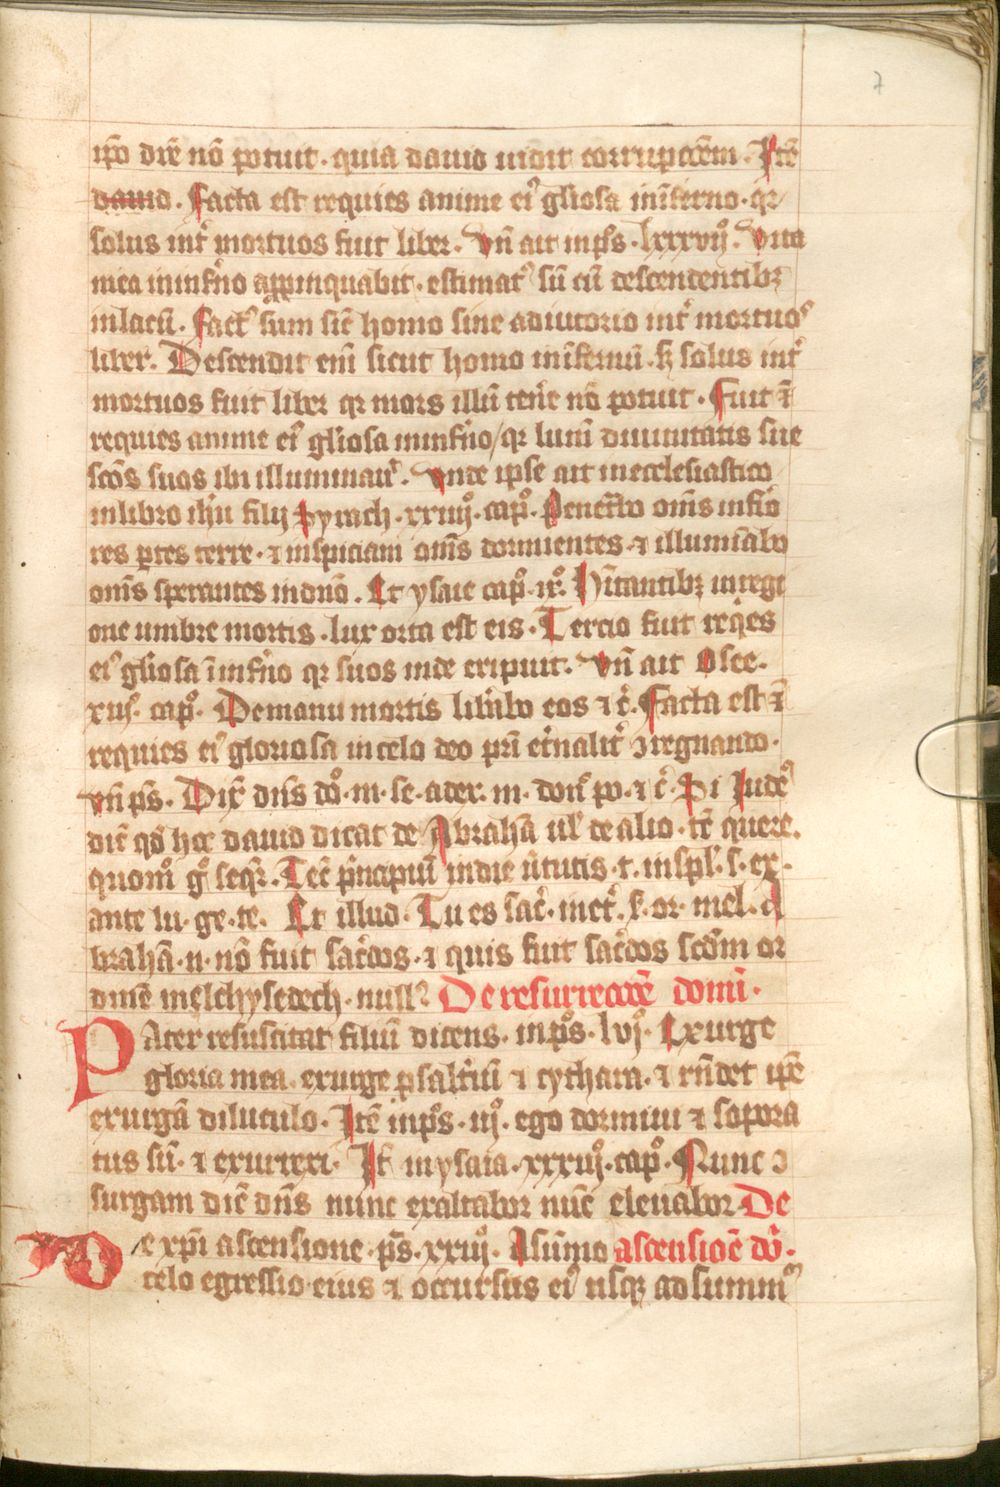 7
ip̄o dic̄e nō potuit · quia dauid uidit corrupcōem · Itē
dauid . Facta est requies anime eiꝰ gl̄iosa in īferno · qr
solus int̄ mortuos fuit liber . Vn̄ ait in ps̄ · lxxxvij° . Vita
mea in infn̄o appinquabit · estimatꝰ sū cū descendentibꝫ
in lacū . Factꝰ sum sic̄ homo sine adiutorio int̄ mortuos
liber . Descendit eni̅ sicut homo in īfernū · sꝫ solus int̄
mortuos fuit liber qr mors illū ten̄e nō potuit . Fuit ī
requies anime eiꝰ gl̄iosa in infn̄o / qr lumī diuinitatis sue
sc̄os suos ibi illuminauit . Vnde ipse ait in ecclesiastico
in libro ihū filij Syrach · xxiiij° . cap° . Penet̄bo om̄s infio
res ꝑtes terre · ⁊ inspiciam om̄s dormientes · ⁊ illumīabo
om̄s sperantes in dn̄o . Et ysaie cap° · ix° . Hītantibꝫ in regi
one umbre mortis · lux orta est eis . Tercio fuit reqies
eiꝰ gl̄iosa ī infn̄o qr suos inde eripuit . Vn̄ ait Osee ·
xiij° . cap° . De manu mortis lib̄abo eos ⁊ c̄ . Facta est ī
requies eiꝰ gloriosa in celo deo pr̄i et̄nalit̄ ꝯregnando ·
Vn̄ ps̄ . Dix̄ dn̄s do° · m · se · a dex · m · don̄ po · ⁊ c̄ . Si Iudeꝰ
dic̄ qd̄ hoc dauid dicat de Abrahā ul̄ de alio · tc̄ quere ·
quom° g° seqr̄ . Tec̄ p̄ncipiū in die ūtutis · t · in spl̄ · s · ex ·
ante lu · ge · te · Et illud . Tu es sac̄ · in et̄ · s · or · mel · A
brahā · n · nō fuit sac̄dos · ⁊ quis fuit sac̄dos sc̄dm or
dinē melchysedech · nullꝰ De resurreccōe domī ·
Pater resuscitat filiū dicens · in ps̄ · lvj° . Exurge
gloria mea · exurge psalt̄iū ⁊ cythara · ⁊ rn̄det ip̄e
exurgā diluculo . Itē in ps̄ · iij° · ego dormiui ⁊ sopora
tus sū · ⁊ exurrexi · It̄ in ysaia · xxxiij° · cap° . Nunc ꝯ
surgam dic̄ dn̄s nunc exaltabor nūc eleuabor De
De xp̄i ascensione · ps̄ · xxiij° . A sūmo ascensioē do̅ ·
celo egressio eius ⁊ occursus eiꝰ usqꝫ ad summꝰ